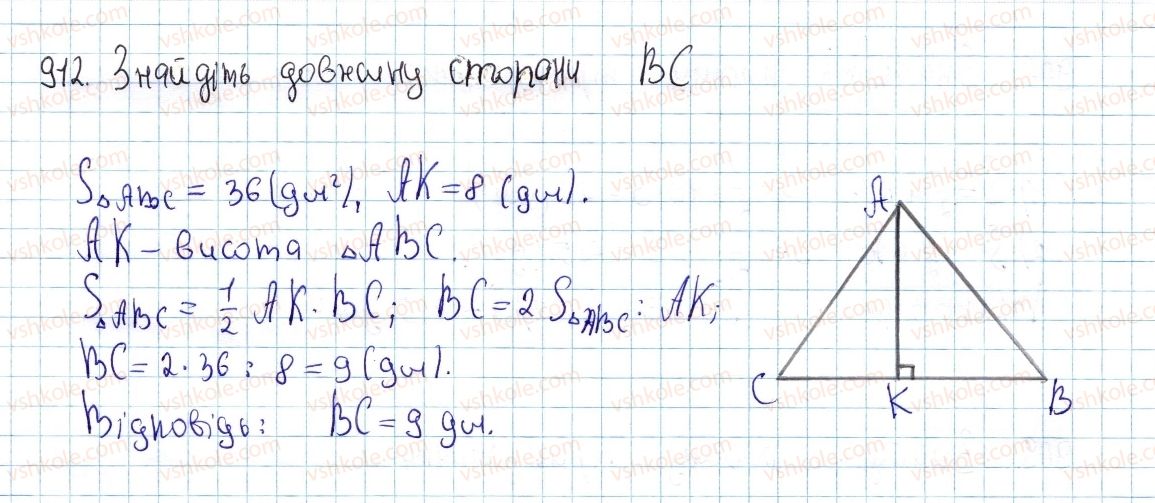 912. Знайдіть довжину сторани BC
S△ABC = 36 (дм²), AK = 8 (дм).
AK – висота △ABC.
S△ABC = 1/2 AK · BC; BC = 2 S△ABC : AK;
BC = 2 · 36 : 8 = 9 (дм).
Відповідь: BC = 9 дм.
A
C
K
B
vshkole.com